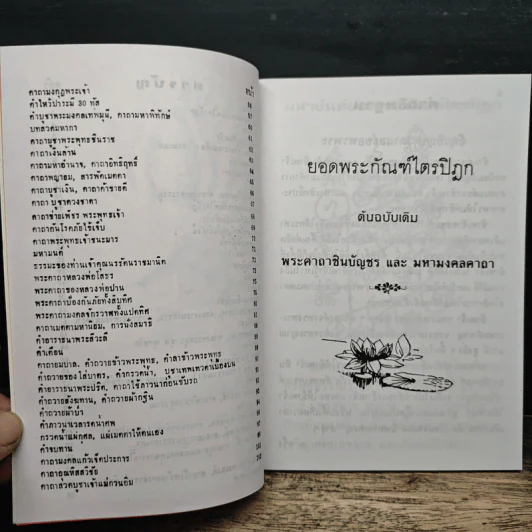 หน้า
คาถามงกุฎพระเจ้า
คำไหว้บารมี 30 ทัศ
คำบูชาพระมงคลเทพมุนี, คาถามหาพิทักษ์
บทสวดมหากา
คาถาบูชาพระพุทธชินราช
คาถาเงินล้าน
คาถามหาอำนาจ, คาถาอิทธิฤทธิ์
คาถาพญายม, สารพัดเมตตา
คาถาบูชาเงิน, คาถาค้าขายดี
คาถา บูชาดวงชาตา
คาถาพระพุทธเจ้าชนะมาร
มหามนต์
ธรรมะของท่านเจ้าคุณนรรัตนราชมานิต
พระคาถาหลวงพ่อโสธร
พระคาถาของหลวงพ่อปาน
พระคาถาป้องกันภัยทั้งสิบทิศ
พระคาถามงคลจักรวาฬทั้งแปดทิศ
คาถาเมตตามหานิยม, การนั่งสมาธิ
คำอาราธนาพระสีวะลี
คำเตือน
คำถวายสังฆทาน, คำถวายผ้ากฐิน
คำถวายผ้าป่า
กรวดน้ำแผ่กุศล, แผ่เมตตาให้ตนเอง
คำจบทาน
คาถามงคลแก้วเจ็ดประการ
คาถาอุณหิสสวิชัย
คาถาสวดบูชาเจ้าแม่กวนอิม
ยอดพระกัณฑ์ไตรปิฎก
ต้นฉบับเดิม
พระคาถาชินบัญชร และ มหามงคลคาถา